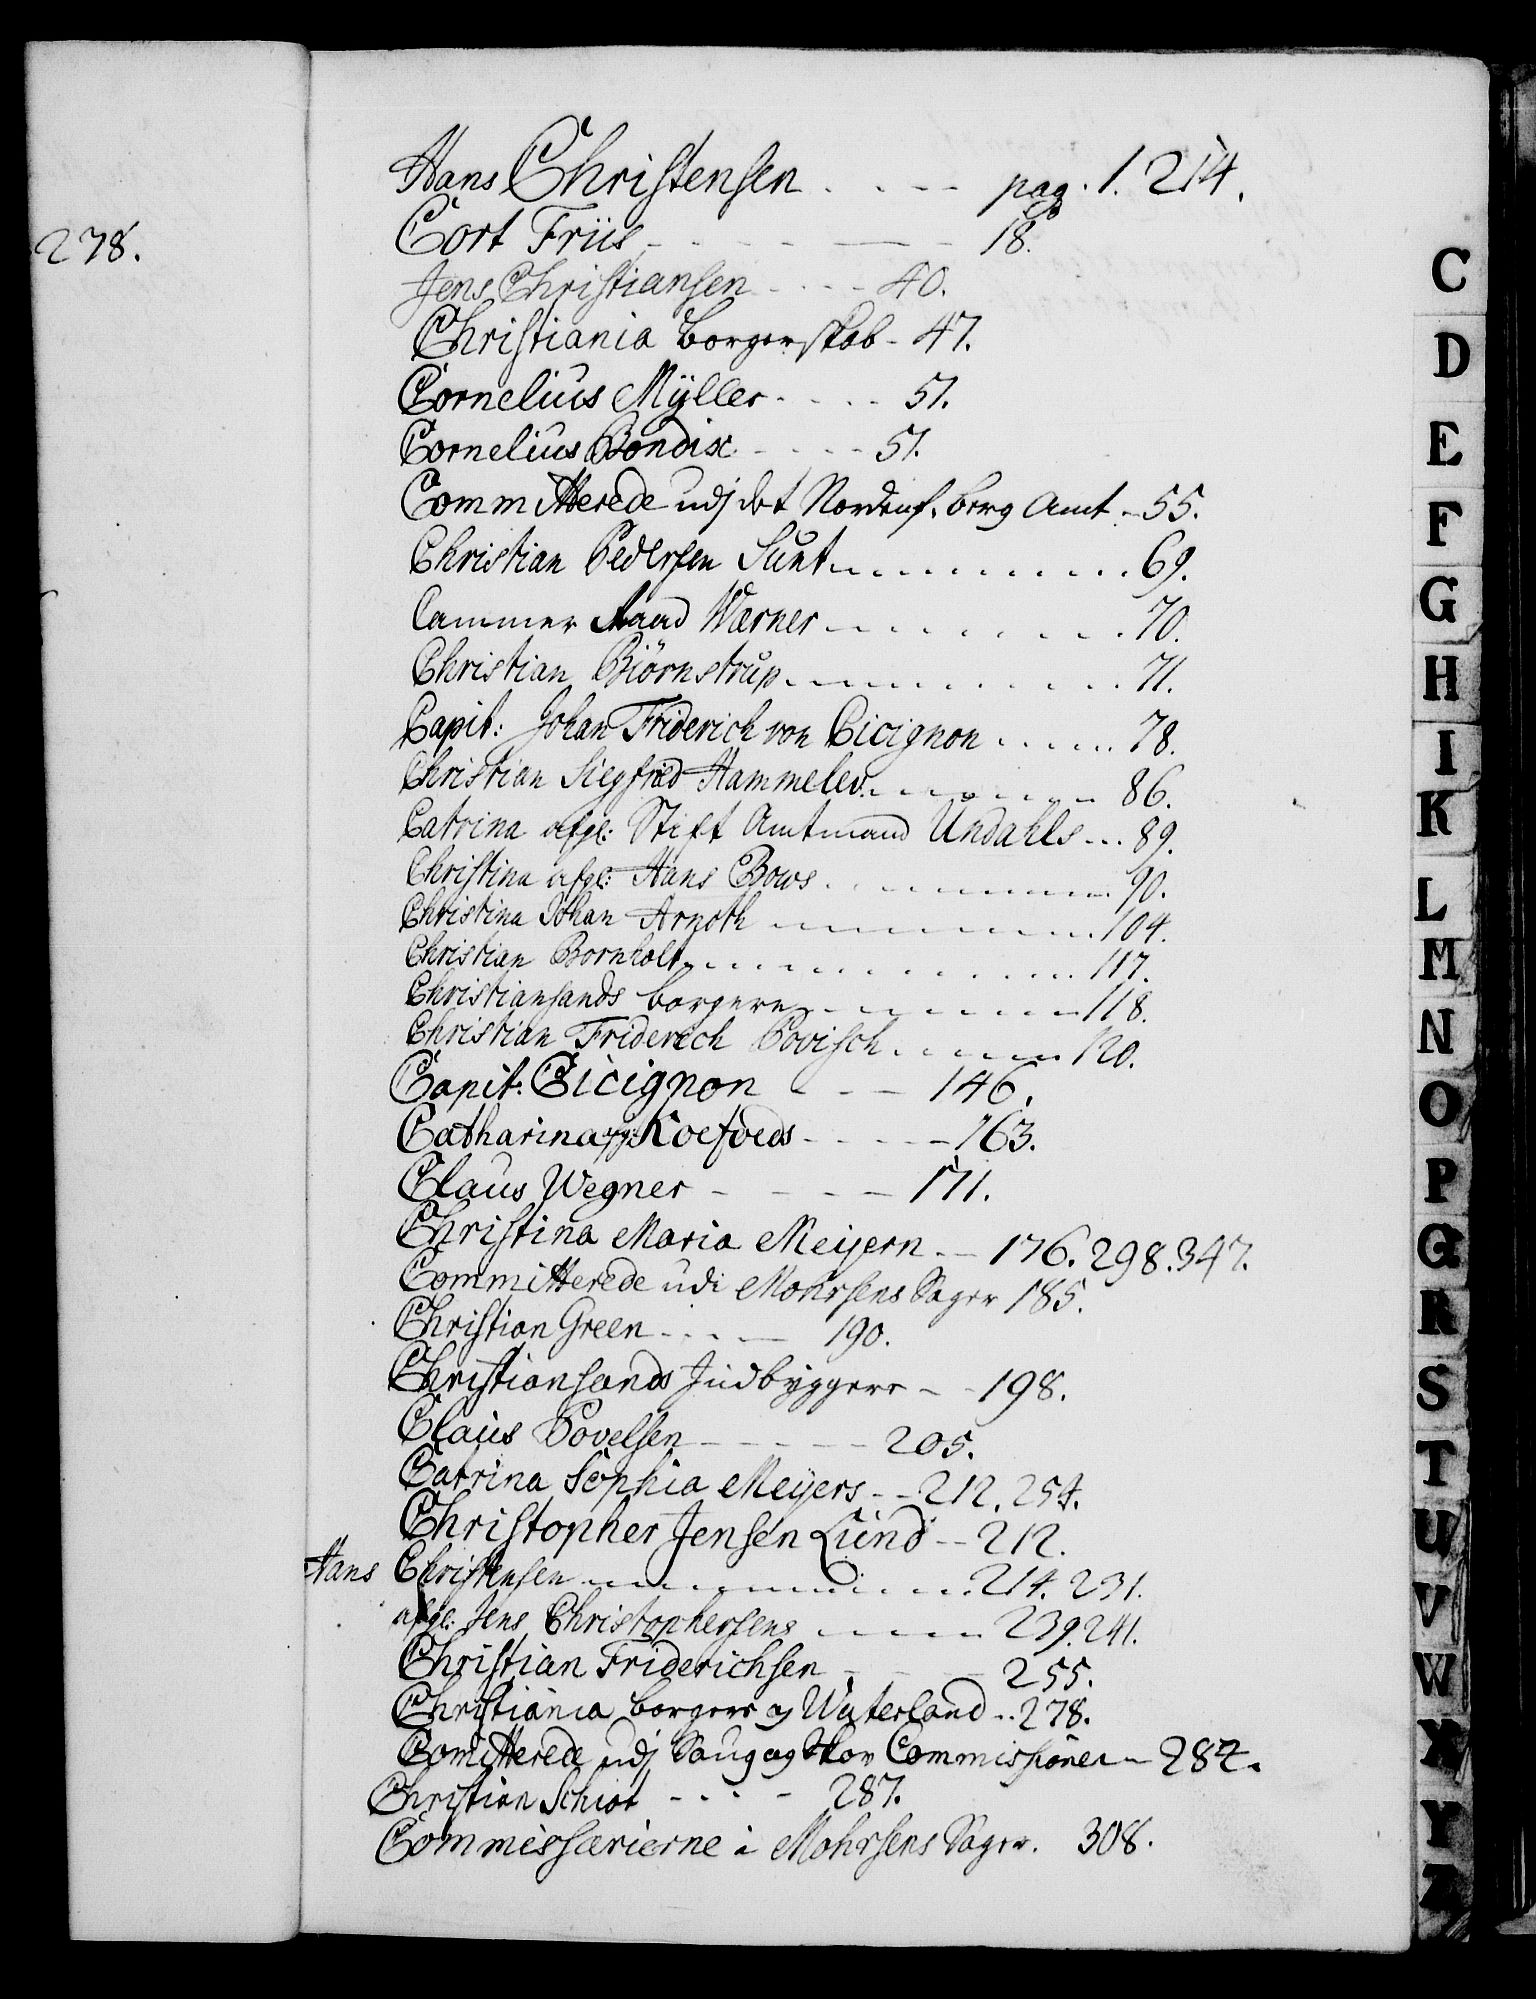 278.
Hans Christensen . . - - pag. 1. 214.
Cort Friis - - - - - - 18.
Jens Christiansen - - - - 40.
Christiania borgerskab - 47.
Cornelius Mÿller - - - - 51.
Cornelius Bondix - - - - 51.
Committerede udj det Nordenf. berg Amt - 55.
Christian Pedersen Sunt - - - - - - 69.
Cammer Raad Wærner - - - - - - 70.
Christian Biörnstrup - - - - - - 71.
Capit: Johan Friderich von Cicignon . . . . . 78.
Christian Siegfred Hammelev - - - - - 86.
Catrina afgl: Stift Amtmand Undahls - - - 89.
Christina afgl: Hans Bows - - - - - 90.
Christina Johan Arnoth - - - - - - 104.
Christian Bornholt - - - - - - 117.
Christiansands borgere - - - - - - 118.
Christian Friderich Povisch - - - - - 120.
Capit: Cicignon - - - 146.
Catharina afgl: Koefoeds - - - - - 163.
Claus Wegner - - - - 171.
Christina Maria Meijern - - 176. 298. 347.
Committerede udi Mohrsens Sager 185.
Christian Green - - - - 190.
Christiansands Indbyggere - - 198.
Claus Povelsen - - - - - 205.
Catrina Sophia Meÿers - - 212. 254.
Christopher Jensen Lund - - 212.
Hans Christensen - - - - - - 214. 231.
afgl: Jens Christophersens - - - - 239. 241.
Christian Friderichsen - - - - 255.
Christiania borgere og Waterland - . 278.
Comitterede udj Saug og Skov Commissionen - 284.
Christian Schiot - - - - 287.
Commissarierne i Mohrsens Sager. 308.
C
D
E
F
G
H
I
K
L
M
N
O
P
Q
R
S
T
U
V
W
X
Y
Z